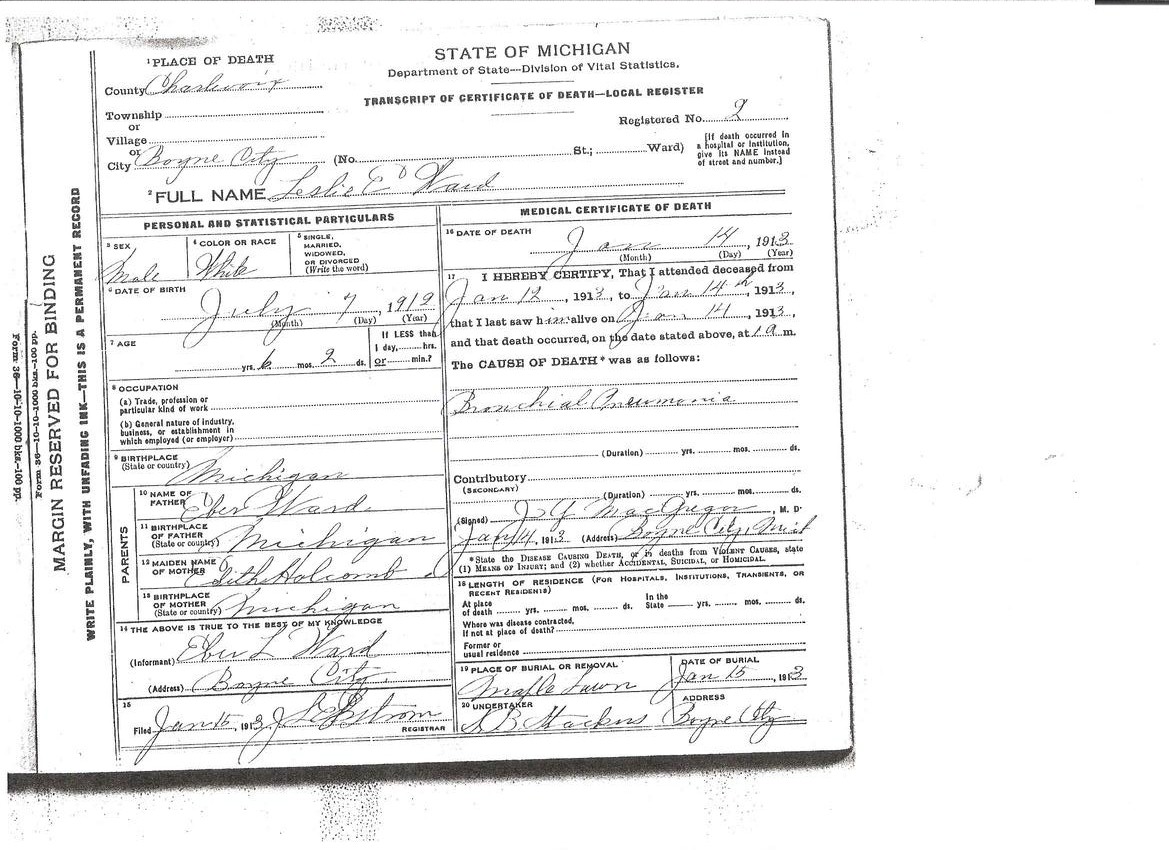 STATE OF MICHIGAN
Department of State—Division of Vital Statistics.
TRANSCRIPT OF CERTIFICATE OF DEATH—LOCAL REGISTER
1 PLACE OF DEATH
County Charlevoix
Township
or
Village
or
City Boyne City (No. St.; Ward)
Registered No. 2
[If death occurred in
a hospital or institution,
give its NAME instead
of street and number.]
2 FULL NAME Leslie E Ward
PERSONAL AND STATISTICAL PARTICULARS
3 SEX
Male
4 COLOR OR RACE
White
5 SINGLE,
MARRIED,
WIDOWED,
OR DIVORCED
(Write the word)
6 DATE OF BIRTH
July 7, 1912
(Month) (Day) (Year)
7 AGE
yrs. 6 mos. 2 ds.
If LESS than
1 day, hrs.
or min.?
8 OCCUPATION
(a) Trade, profession or
particular kind of work
(b) General nature of industry,
business, or establishment in
which employed (or employer)
9 BIRTHPLACE
(State or country) Michigan
PARENTS
10 NAME OF
FATHER Eber Ward
11 BIRTHPLACE
OF FATHER
(State or country) Michigan
12 MAIDEN NAME
OF MOTHER Edith Holcomb
13 BIRTHPLACE
OF MOTHER
(State or country) Michigan
14 THE ABOVE IS TRUE TO THE BEST OF MY KNOWLEDGE
(Informant) Eber L Ward
(Address) Boyne City
15
Filed Jan 15, 1913 REGISTRAR
MEDICAL CERTIFICATE OF DEATH
16 DATE OF DEATH
Jan 14, 1913
(Month) (Day) (Year)
17 I HEREBY CERTIFY, That I attended deceased from
Jan 12, 1913, to Jan 14th, 1913,
that I last saw him alive on Jan 14, 1913,
and that death occurred, on the date stated above, at 1 a m.
The CAUSE OF DEATH* was as follows:
Bronchial Pneumonia
(Duration) yrs. mos. ds.
Contributory
(SECONDARY)
(Duration) yrs. mos. ds.
(Signed) MacGregor, M. D.
Jan 14, 1913 (Address) Boyne City, Mich
*State the DISEASE CAUSING DEATH, or in deaths from VIOLENT CAUSES, state
(1) MEANS OF INJURY; and (2) whether ACCIDENTAL, SUICIDAL, or HOMICIDAL.
18 LENGTH OF RESIDENCE (FOR HOSPITALS, INSTITUTIONS, TRANSIENTS, OR
RECENT RESIDENTS)
At place
of death yrs. mos. ds.
In the
State yrs. mos. ds.
Where was disease contracted,
if not at place of death?
Former or
usual residence
19 PLACE OF BURIAL OR REMOVAL
Maple Lawn
DATE OF BURIAL
Jan 15, 1913
20 UNDERTAKER
ADDRESS
Boyne City
MARGIN RESERVED FOR BINDING
WRITE PLAINLY, WITH UNFADING INK—THIS IS A PERMANENT RECORD
Form 36—10-10-1000 bks.-100 pp.
Form 36—10-10-1000 bks.-100 pp.